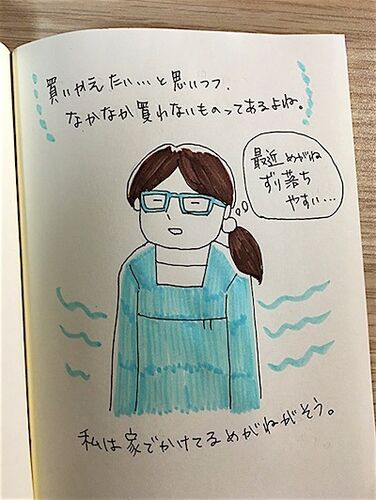 買いかえたい…と思いつつ、
なかなか買えないものってあるよね。
最近めがね
ずり落ち
やすい…
私は家でかけてるめがねがそう。